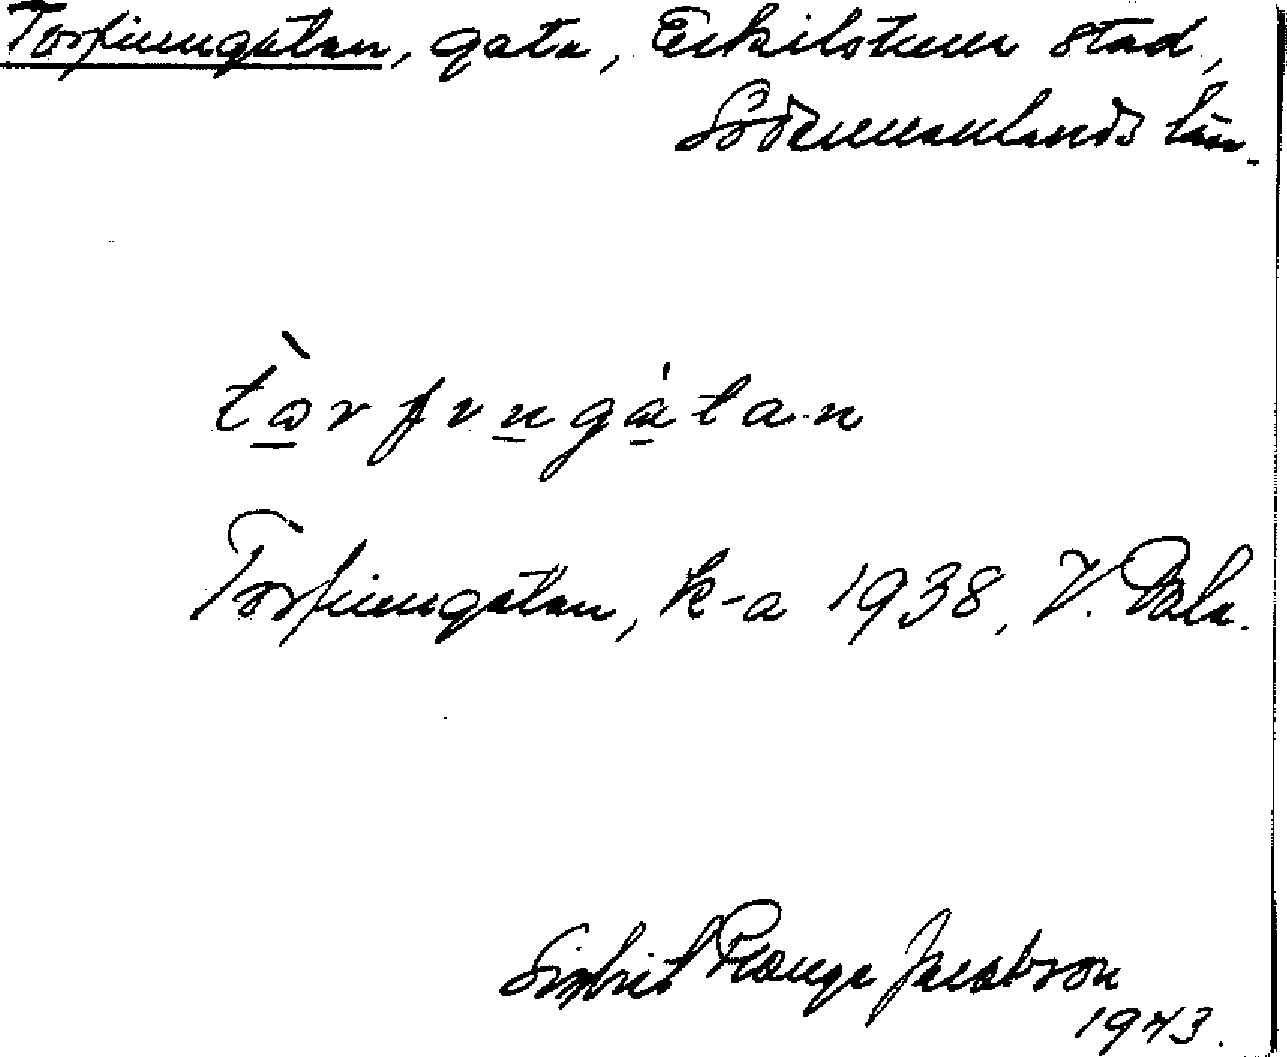 Torfinngatan, gata, Eskilstuna stad,
Södermanlands län.
tɷ̀rfɩngátan
Torfinngatan, k-a 1938, V. Bla.
Sigbrit Plænge Jacobson
1943.